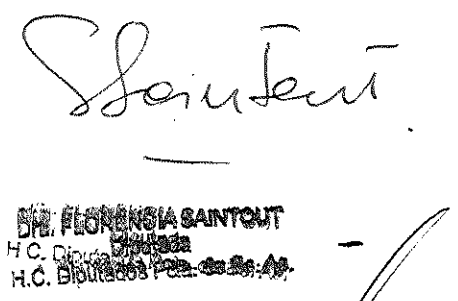 FSaintout
Dra. FLORENCIA SAINTOUT
Diputada
H.C. Diputados Pcia. de Bs. As.